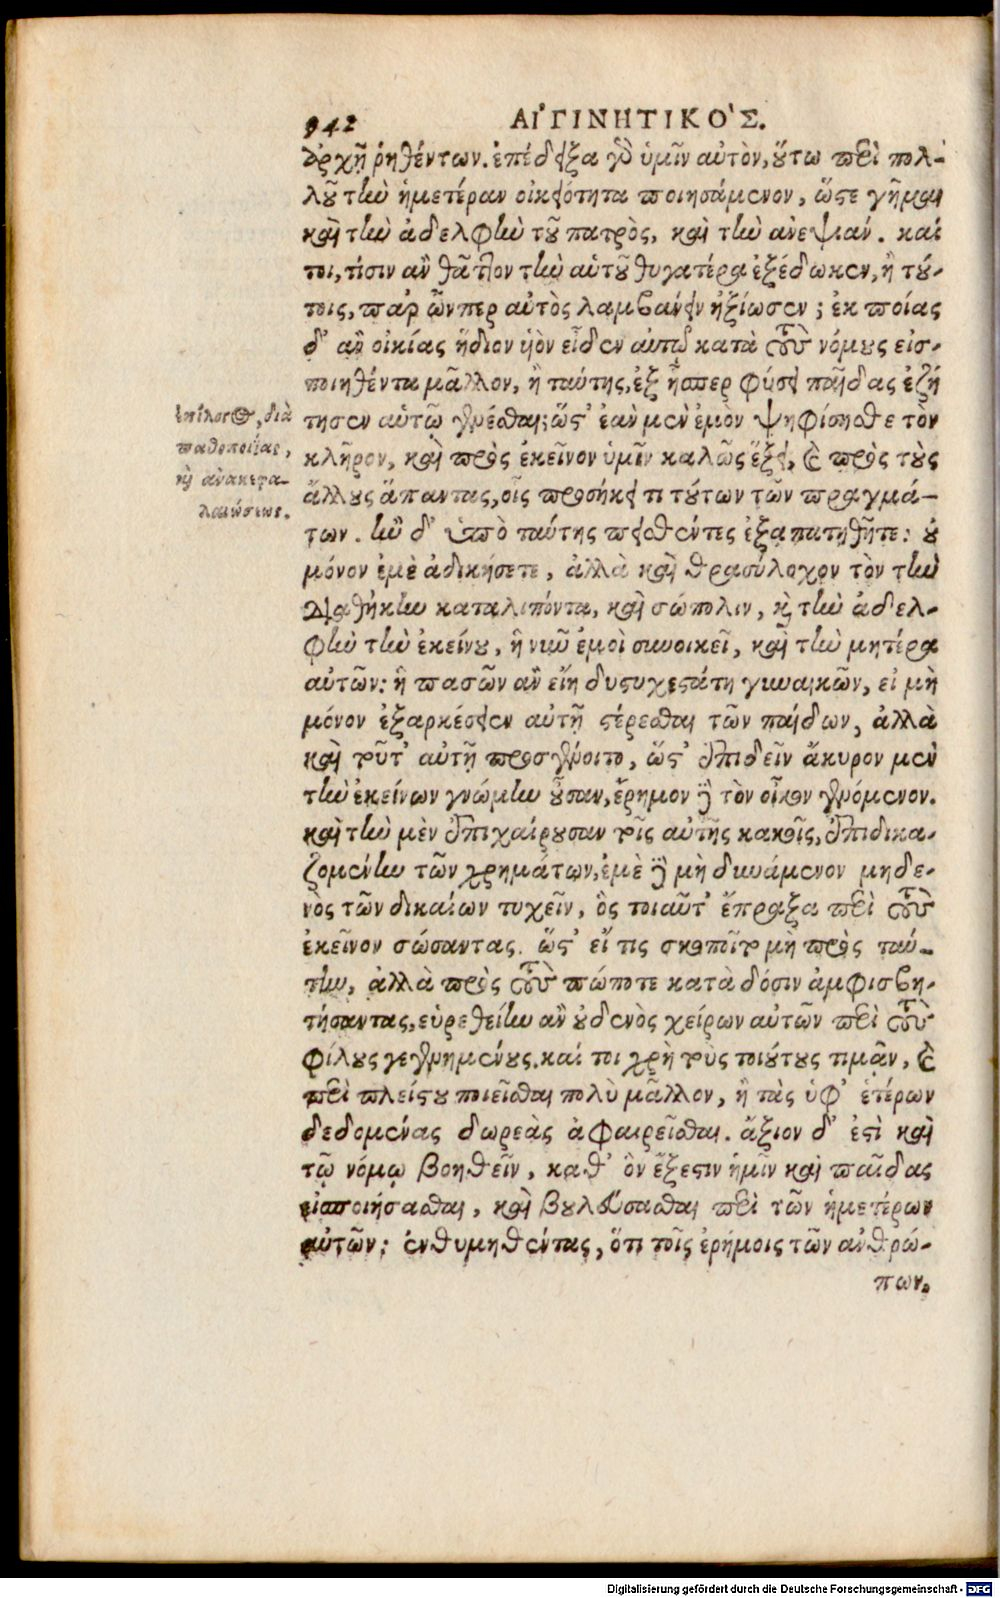 942 ΑἰΓΙΝΗΤΙΚΟ'Σ.
ἀρχῇ ῥηθέντων. ἐπέδειξα γὸ ὑμῖν αὐτὸν, οὕτω περὶ πολ-
λοῦ τὴν ἡμετέραν οἰκειότητα ποιησάμενον, ὥστε γῆμαι
καὶ τὴν ἀδελφὴν τοῦ πατρὸς, καὶ τὴν ἀνεψιάν. καί
τοι, τίσιν ἂν θᾶττον τὴν αὑτοῦ θυγατέρα ἐξέδωκεν, ἢ τού-
τοις, παρ ὧνπερ αὐτὸς λαμβάνειν ἠξίωσεν; ἐκ ποίας
δ' ἂν οἰκίας ἥδιον υἱὸν εἶδεν αὑτῷ κατὰ τοὺς νόμους εἰσ-
ποιηθέντα μᾶλλον, ἢ ταύτης, ἐξ ἧσπερ φύσει παῖδας ἐζή
τησεν αὑτῷ γενέσθαι; ὥστ' ἐὰν μὲν ἐμὸν ψηφίσησθε τὸν
κλῆρον, καὶ πρὸς ἐκεῖνον ὑμῖν καλῶς ἕξει, καὶ πρὸς τοὺς
ἄλλους ἅπαντας, οἷς προσήκει τι τούτων τῶν πραγμά-
των. ἢν δ' ὑπὸ ταύτης πεισθέντες ἐξαπατηθῆτε: οὐ
μόνον ἐμὲ ἀδικήσετε, ἀλλὰ καὶ θρασύλοχον τὸν τὴν
διαθήκην καταλιπόντα, καὶ σώπολιν, καὶ τὴν ἀδελ-
φὴν τὴν ἐκείνου, ἣ νῦν ἐμοὶ συνοικεῖ, καὶ τὴν μητέρα
αὐτῶν: ἣ πασῶν ἂν εἴη δυστυχεστάτη γυναικῶν, εἰ μὴ
μόνον ἐξαρκέσειεν αὐτῇ στέρεσθαι τῶν παίδων, ἀλλὰ
καὶ τοῦτ' αὐτῇ προσγένοιτο, ὥστ' ἐπιδεῖν ἄκυρον μὲν
τὴν ἐκείνων γνώμην οὖσαν, ἔρημον δὲ τὸν οἶκον γενόμενον.
καὶ τὴν μὲν ἐπιχαίρουσαν τοῖς αὑτῆς κακοῖς, ἐπιδικα-
ζομένην τῶν χρημάτων, ἐμὲ δὲ μὴ δυνάμενον μηδε-
νὸς τῶν δικαίων τυχεῖν, ὃς τοιαῦτ' ἔπραξα περὶ τοὺς
ἐκεῖνον σώσαντας. ὥστ' εἴ τις σκοποῖτο μὴ πρὸς ταύ-
την, ἀλλὰ πρὸς τοὺς πώποτε κατὰ δόσιν ἀμφισβη-
τήσαντας, εὑρεθείην ἂν οὐδενὸς χείρων αὐτῶν περὶ τοὺς
φίλους γεγενημένους. καί τοι χρὴ τοὺς τοιούτους τιμᾶν, καὶ
περὶ πλείστου ποιεῖσθαι πολὺ μᾶλλον, ἢ τὰς ὑφ' ἑτέρων
δεδομένας δωρεὰς ἀφαιρεῖσθαι. ἄξιον δ' ἐστὶ καὶ
τῷ νόμῳ βοηθεῖν, καθ' ὃν ἔξεστιν ἡμῖν καὶ παῖδας
εἰσποιήσασθαι, καὶ βουλεύσασθαι περὶ τῶν ἡμετέρων
αὐτῶν; ἐνθυμηθέντας, ὅτι τοῖς ἐρήμοις τῶν ἀνθρώ-
πων.
ἐπίλογος, διὰ
παθοποιίας,
καὶ ἀνακεφα-
λαιώσεως.
Digitalisierung gefördert durch die Deutsche Forschungsgemeinschaft - DFG